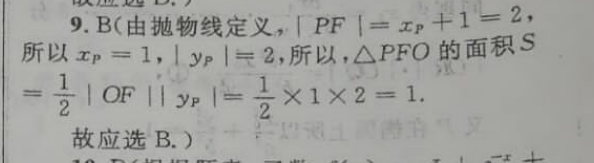 9. B(由抛物线定义,| PF |= x_P + 1 = 2,
所以 x_P = 1, | y_P |= 2,所以,△PFO 的面积 S
= \frac{1}{2} | OF || y_P |= \frac{1}{2} × 1 × 2 = 1.
故应选 B.)